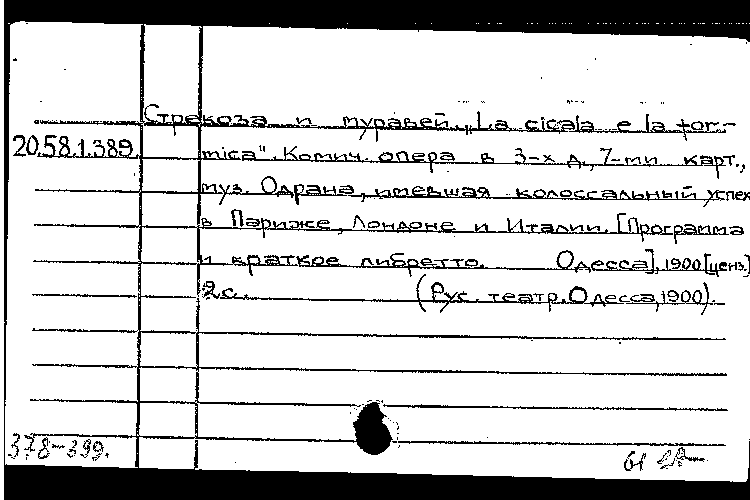 Стрекоза и муравей. „La cicala e la for-
20.58.1.389. mica". Комич. опера в 3-х д., 7-ми карт.,
муз. Одрана, имевшая колоссальный успех
в Париже, Лондоне и Италии. [Программа
и краткое либретто. Одесса], 1900 [ценз.]
2 с. (Рус. театр. Одесса, 1900).
378-399. 61